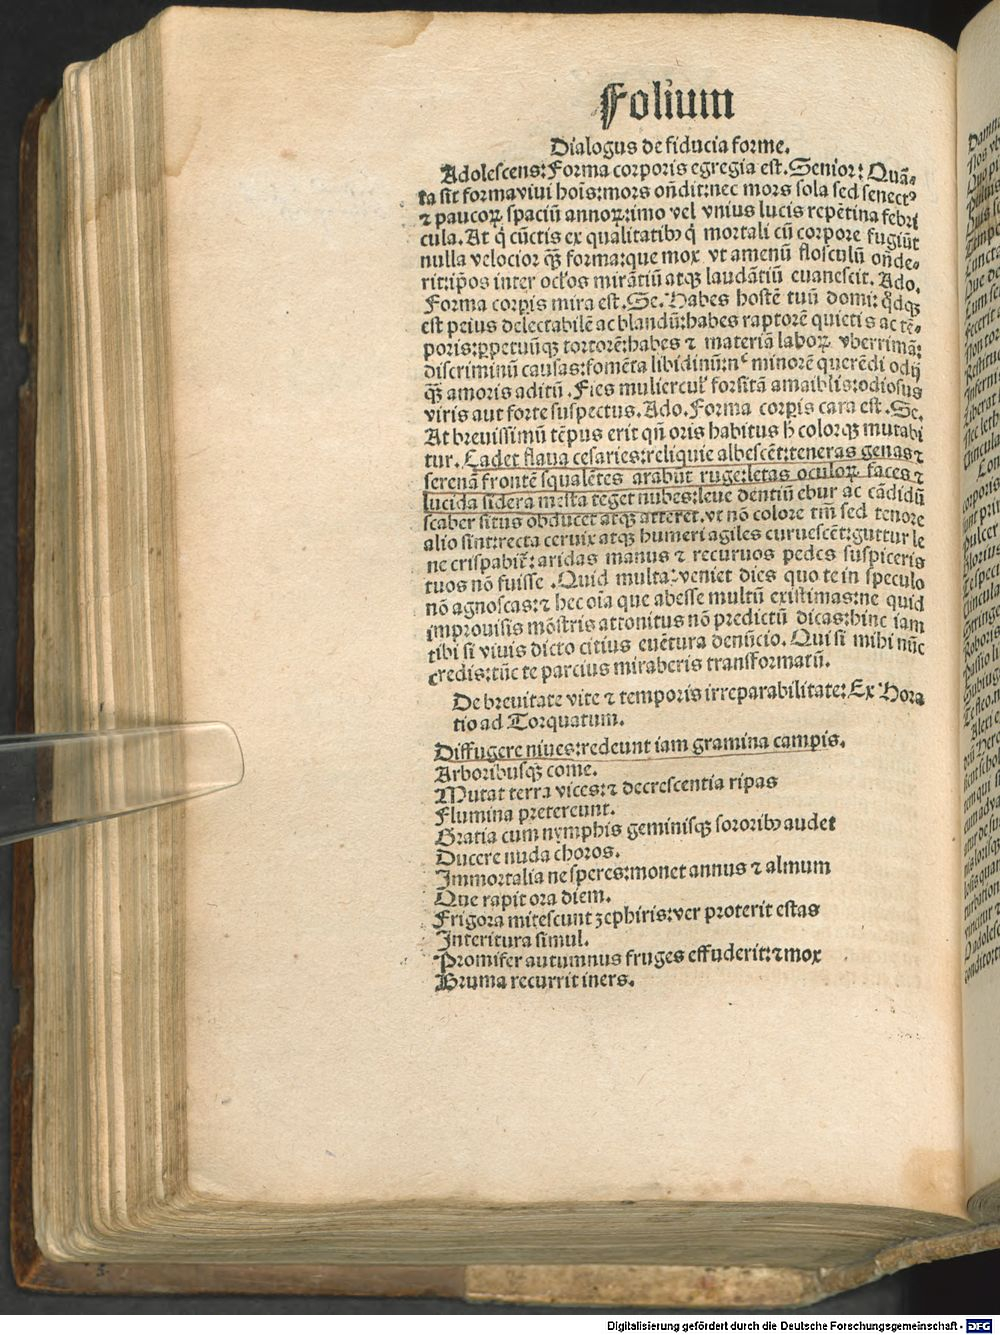 Folium
Dialogus de fiducia forme.
Adolescens: Forma corporis egregia est. Senior: Quã-
ta sit forma viui hoĩs: mors oñdit: nec mors sola sed senectꝰ
⁊ paucoꝝ spaciũ annoꝝ: imo vel vnius lucis repẽtina febri
cula. At q̃ cũctis ex qualitatibꝫ q̃ mortali cũ corpore fugiũt
nulla velocior qꝫ̃ forma: que mox vt amenũ flosculũ oñde-
rit: ip̃os inter oc̃los mirãtiũ atqꝫ laudãtiũ euanescit. Ado.
Forma corꝑis mira est. Se. Habes hostẽ tuũ domi: q̃dqꝫ
est peius delectabilẽ ac blandũ: habes raptorẽ quietis ac tẽ-
poris: ꝑpetuũqꝫ tortorẽ: habes ⁊ materiã laboꝝ vberrimã:
discriminũ causas: fomẽta libidinũ: nᶜ minorẽ querẽdi odij
qꝫ̃ amoris aditũ. Fies muliercul' forsitã amaiblis: odiosus
viris aut forte suspectus. Ado. Forma corꝑis cara est. Se.
At breuissimũ tẽpus erit qñ oris habitus h̃ colorqꝫ mutabi
tur. Cadet flaua cesaries: reliquie albescẽt: teneras genas ⁊
serenã frontẽ squalẽtes arabũt ruge: letas oculoꝝ faces ⁊
lucida sidera mesta teget nubes: leue dentiũ ebur ac cãdidũ
scaber situs obducet atqꝫ atteret. vt nõ colore tm̃ sed tenore
alio sint: recta ceruix atqꝫ humeri agiles curuescẽt: guttur le
ne crispabit̃: aridas manus ⁊ recuruos pedes suspiceris
tuos nõ fuisse. Quid multa: veniet dies quo te in speculo
nõ agnoscas: ⁊ hec oĩa que abesse multũ existimas: ne quid
improuisis mõstris attonitus nõ predictũ dicas: hinc iam
tibi si viuis dicto citius euẽtura denũcio. Qui si mihi nũc
credis: tũc te parcius miraberis transformatũ.
De breuitate vite ⁊ temporis irreparabilitate: Ex Hora
tio ad Torquatum.
Diffugere niues: redeunt iam gramina campis.
Arboribusqꝫ come.
Mutat terra vices: ⁊ decrescentia ripas
Flumina pretereunt.
Gratia cum nymphis geminisqꝫ sororibꝫ audet
Ducere nuda choros.
Immortalia ne speres: monet annus ⁊ almum
Que rapit ora diem.
Frigora mitescunt zephiris: ver proterit estas
Interitura simul.
Promifer autumnus fruges effuderit: ⁊ mox
Bruma recurrit iners.
Digitalisierung gefördert durch die Deutsche Forschungsgemeinschaft - DFG